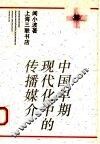 中国早期
现代化中的
传播媒介
闾小波著
上海三联书店